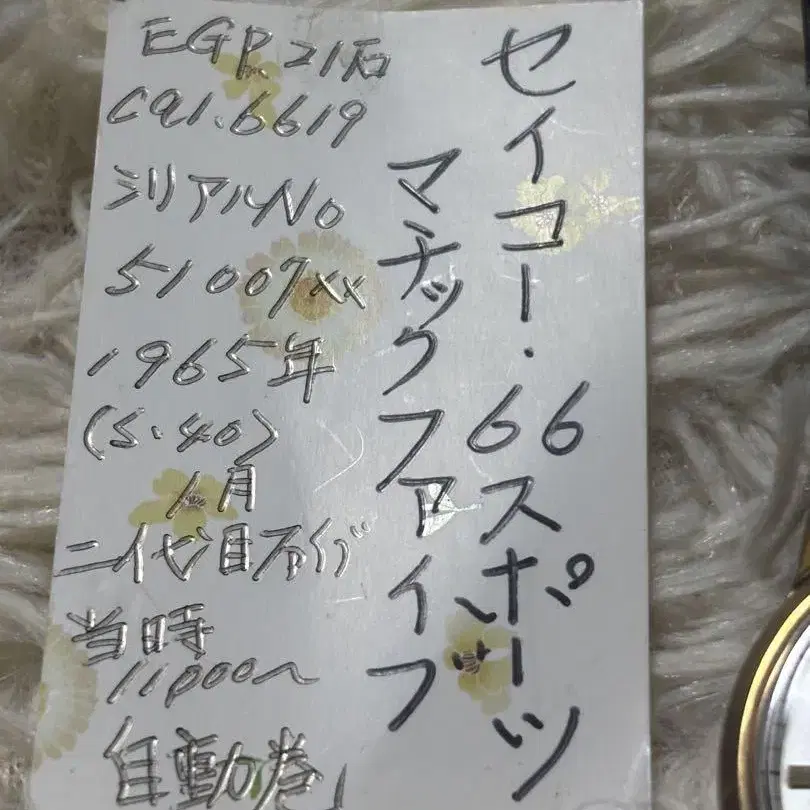 セイコー・66スポーツ
マチックファイブ
EGP.21石
cal.6619
シリアルNo
51007××
1965年
(S.40)
1月
二代目ファイブ
当時
11000～
自動巻